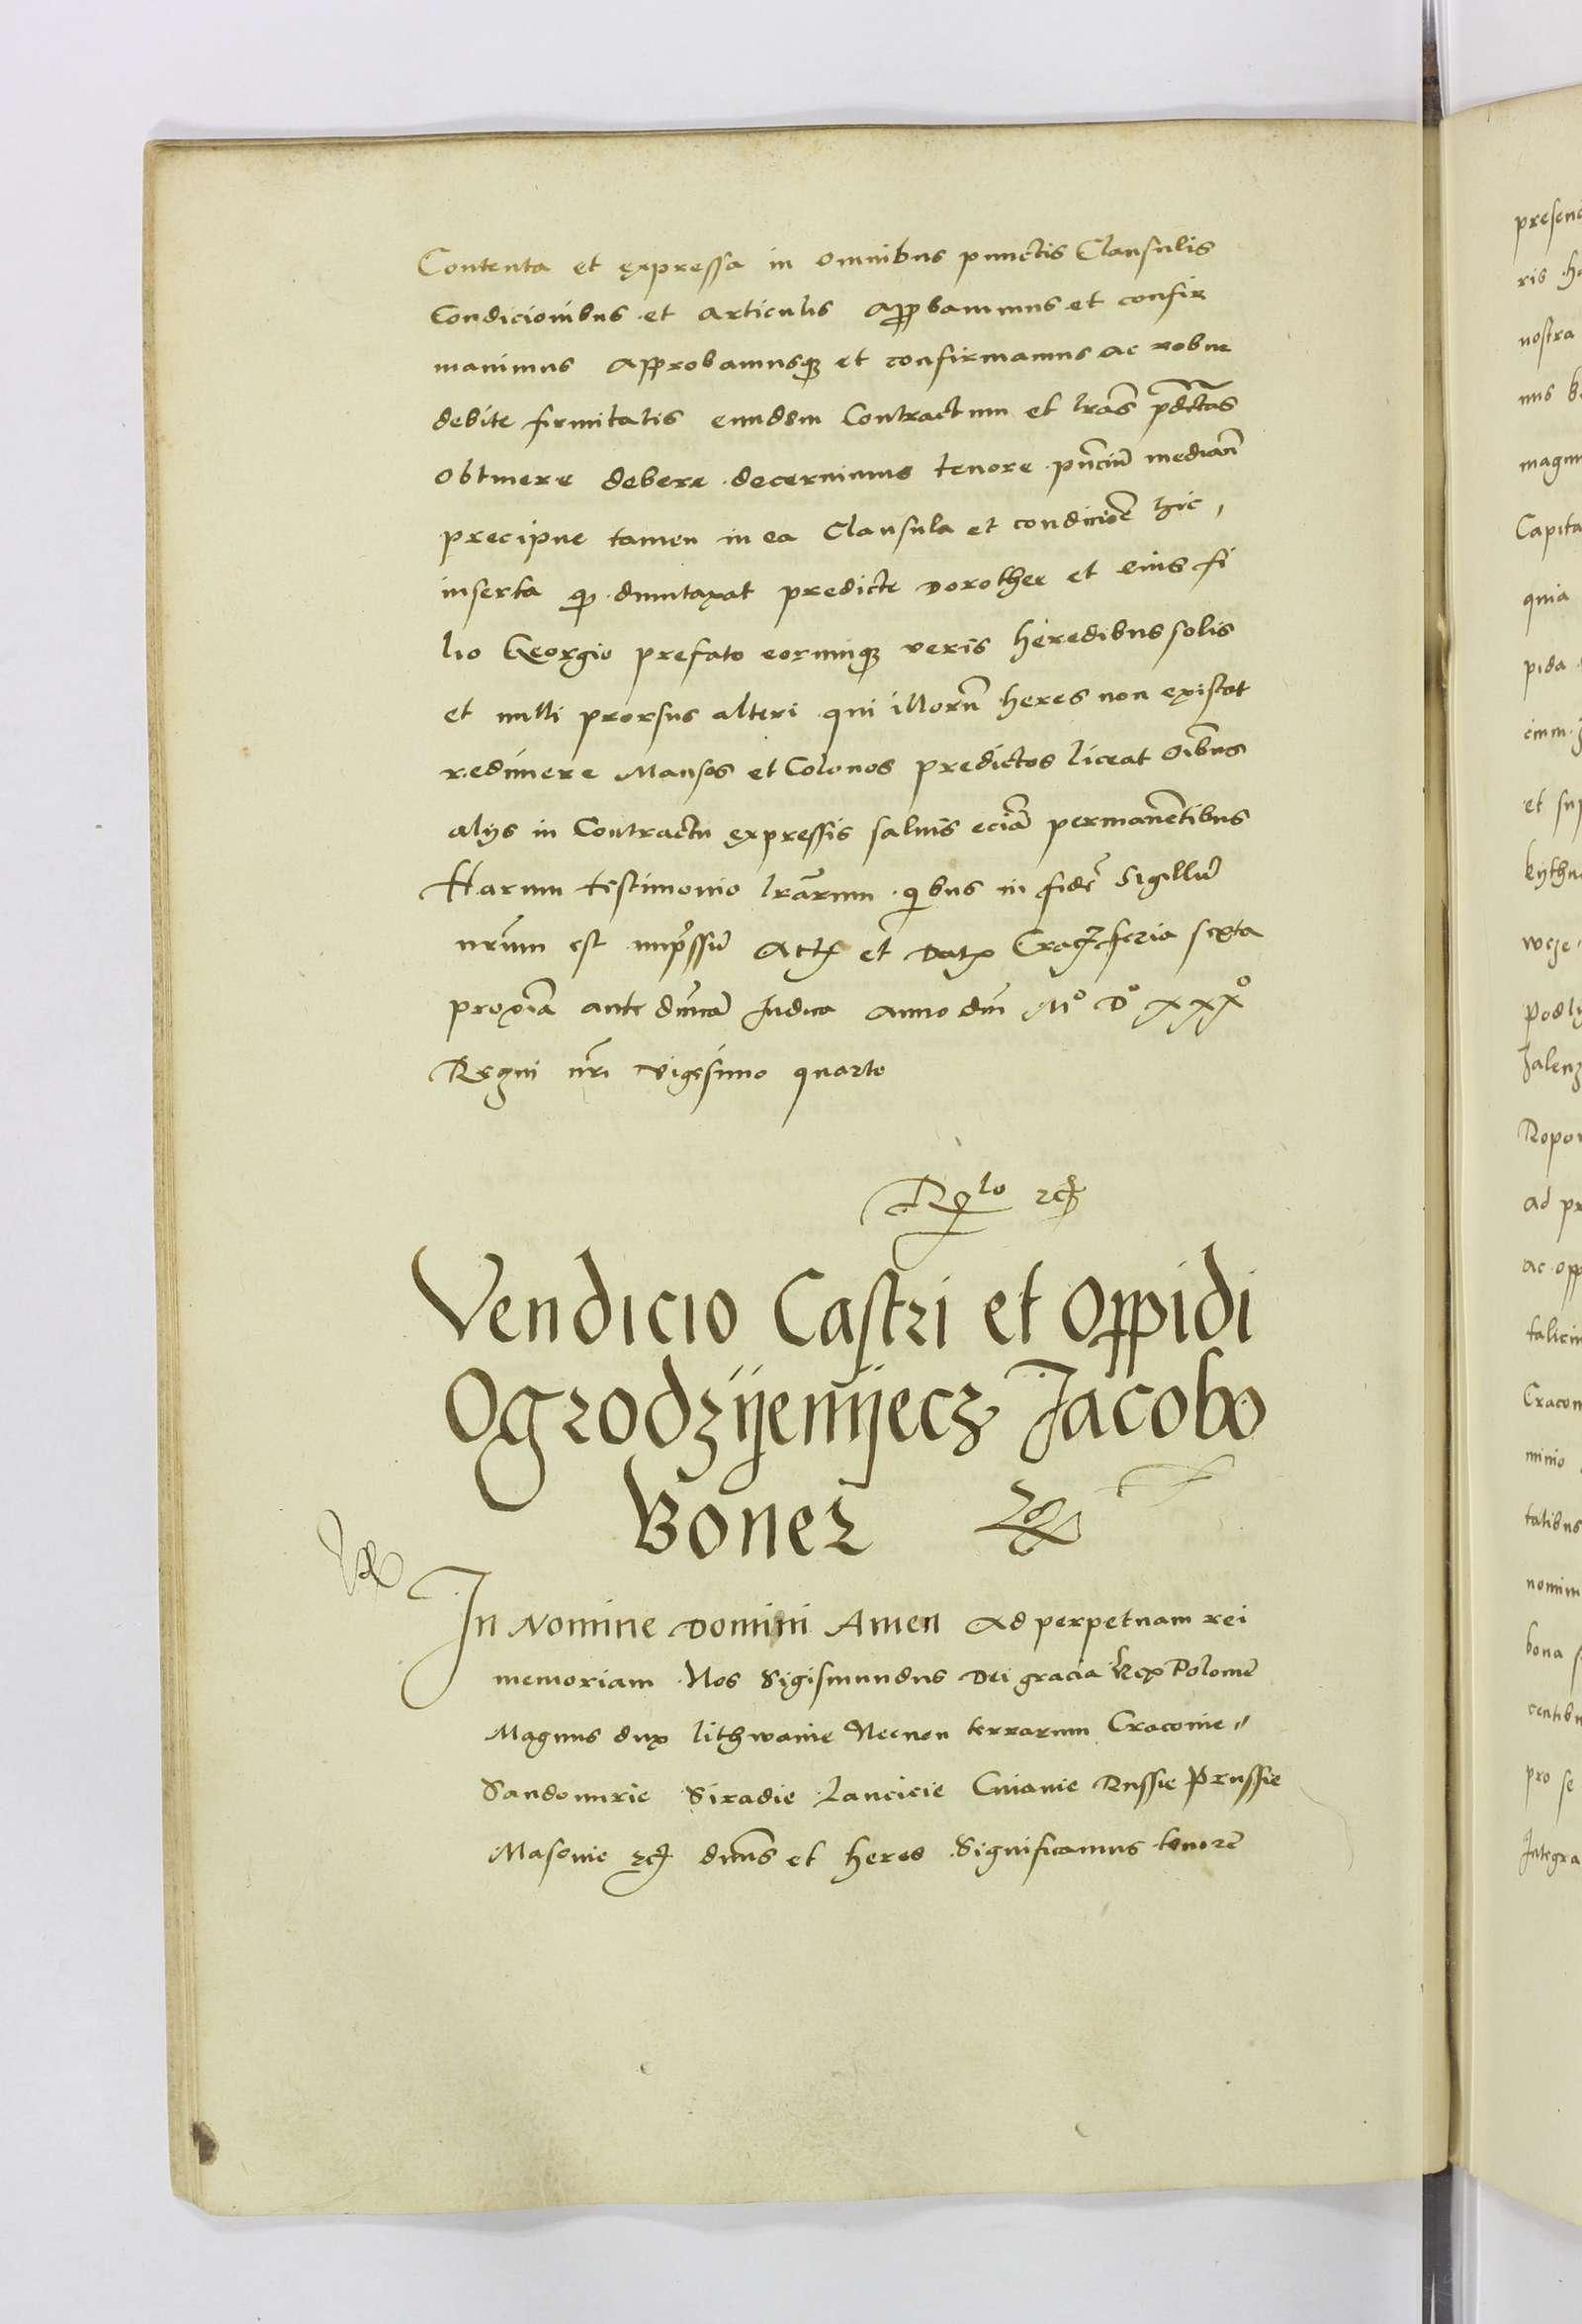 Contenta et expressa in omnibus punctis Clausulis
Condicionibus et articulis appbauimus et confir
mauimus approbamusq3 et confirmamus ac robur
debite firmitatis eundem Contractum et lras pdctas
obtinere debere decernimus tenore pncium median
precipue tamen in ea Clausula et condicioe hic
inserta q duntaxat predicte Dorothee et eius fi
lio Georgio prefato eorumq3 veris heredibus solis
et nulli prorsus alteri qui illoru heres non existat
redimere Mansos et Colonos predictos liceat oibus
alijs in Contractu expressis saluis ecia permanetibus
Harum testimonio lrarum quibus in fide Sigillu
nrum est impssu Act et Dat Crac feria sexta
proxia ante dnica Judica anno dni Mo Do xxxo
Regni nri vigesimo quarto
Rlo
Vendicio Castri et oppidi
Ogrodzijenijecz Jacobo
Boner
In Nomine Domini Amen Ad perpetuam rei
memoriam Nos Sigismundus Dei gracia Rex Polonie
Magnus dux lithwanie Necnon terrarum Cracouie
Sandomirie Siradie Lancicie Cuiauie Russie Prussie
Masouie rc dnus et heres Significamus tenore
presenc
ris
nostra
magn
Capita
quia
pida
et sup
Ropo
ad pr
ac opp
Cracou
minio
tatibus
nomin
bona
centib
pro se
Integra